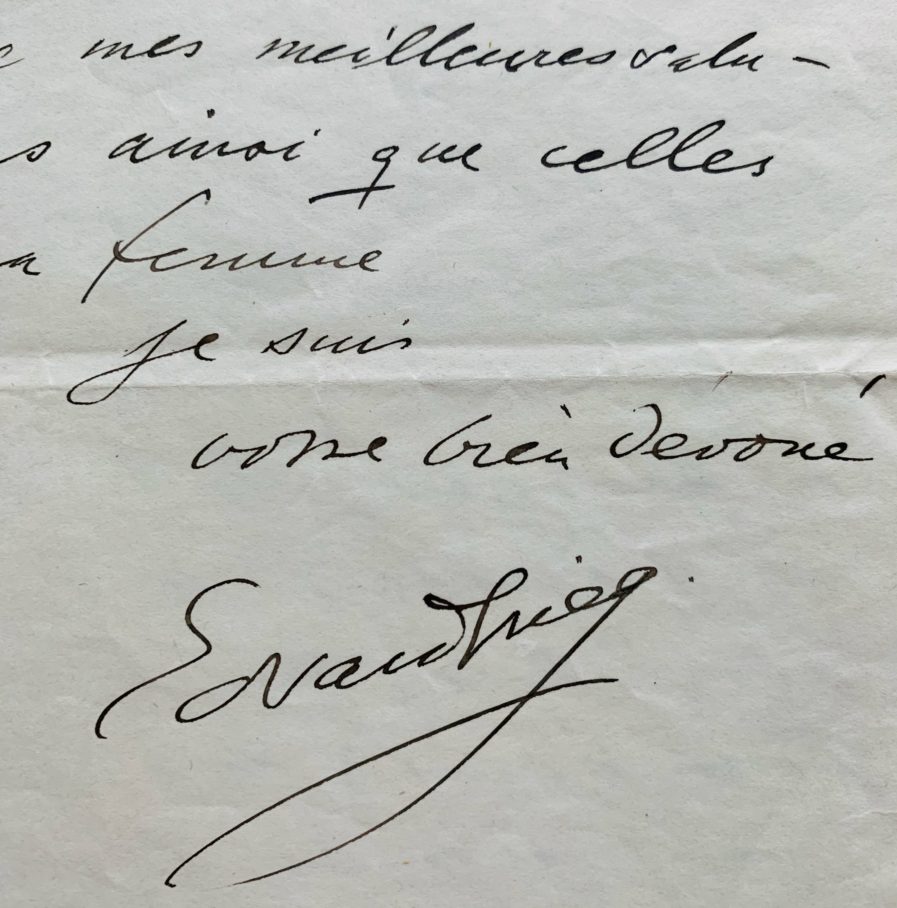 mes meilleures salu-
s ainsi que celles
a femme
je suis
votre bien dévoué
Edvard Grieg